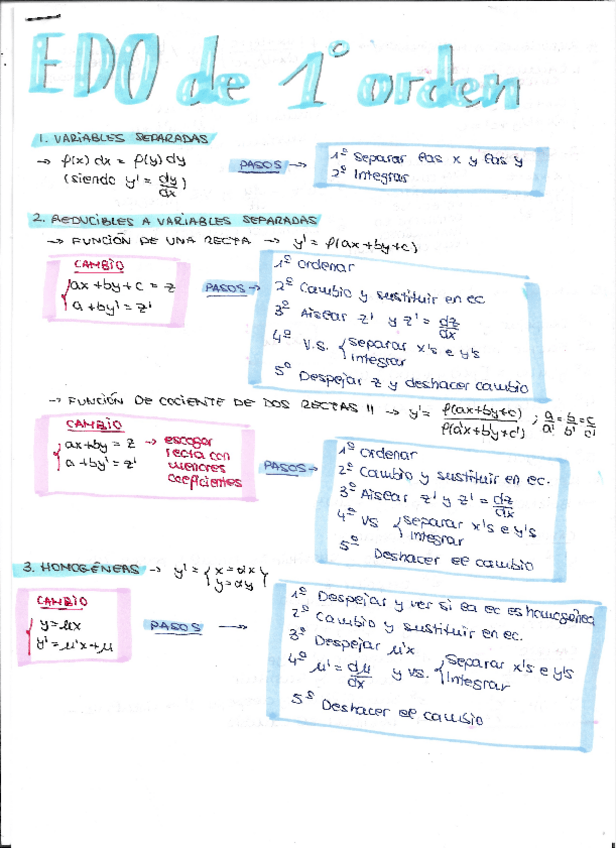 EDO de 1º orden
1. VARIABLES SEPARADAS
→ f(x) dx = f(y) dy
(siendo y' = dy/dx)
PASOS →
1º Separar las x y las y
2º Integrar
2. REDUCIBLES A VARIABLES SEPARADAS
→ FUNCIÓN DE UNA RECTA → y' = f(ax+by+c)
CAMBIO
{ax+by+c = z
a+by' = z'
PASOS →
1º ordenar
2º Cambio y sustituir en ec
3º Aislar z' y z' = dz/dx
4º V.S. {separar x's e y's
integrar
5º Despejar z y deshacer cambio
→ FUNCIÓN DE COCIENTE DE DOS RECTAS II → y' = f(ax+by+c)/f(a'x+b'y+c') ; a/a' = b/b' = c/c'
CAMBIO
{ax+by = z → escoger
a+by' = z' recta con
menores
coeficientes
PASOS →
1º ordenar
2º Cambio y sustituir en ec.
3º Aislar z' y z' = dz/dx
4º VS {separar x's e y's
integrar
5º Deshacer el cambio
3. HOMOGÉNEAS → y' = {x = αx
y = αy}
CAMBIO
{y = μx
y' = μ'x+μ
PASOS →
1º Despejar y ver si la ec es homogénea
2º Cambio y sustituir en ec.
3º Despejar μ'x
4º μ' = dμ/dx y vs. {Separar x's e y's
Integrar
5º Deshacer el cambio